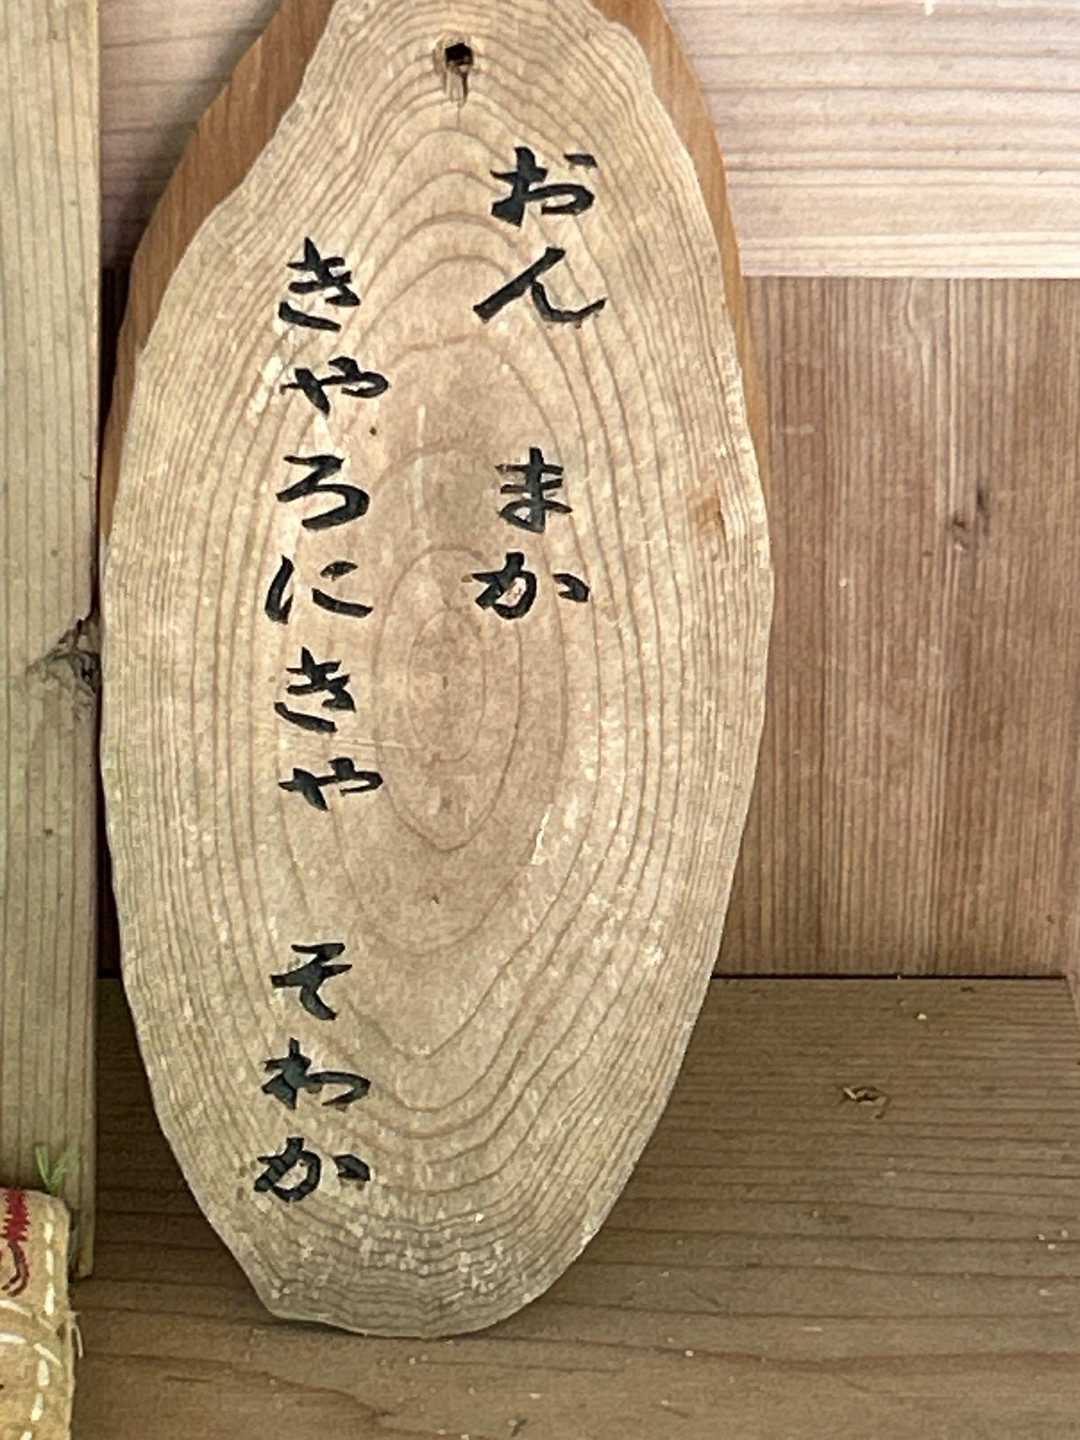 おん　まか
きやろにきや　そわか